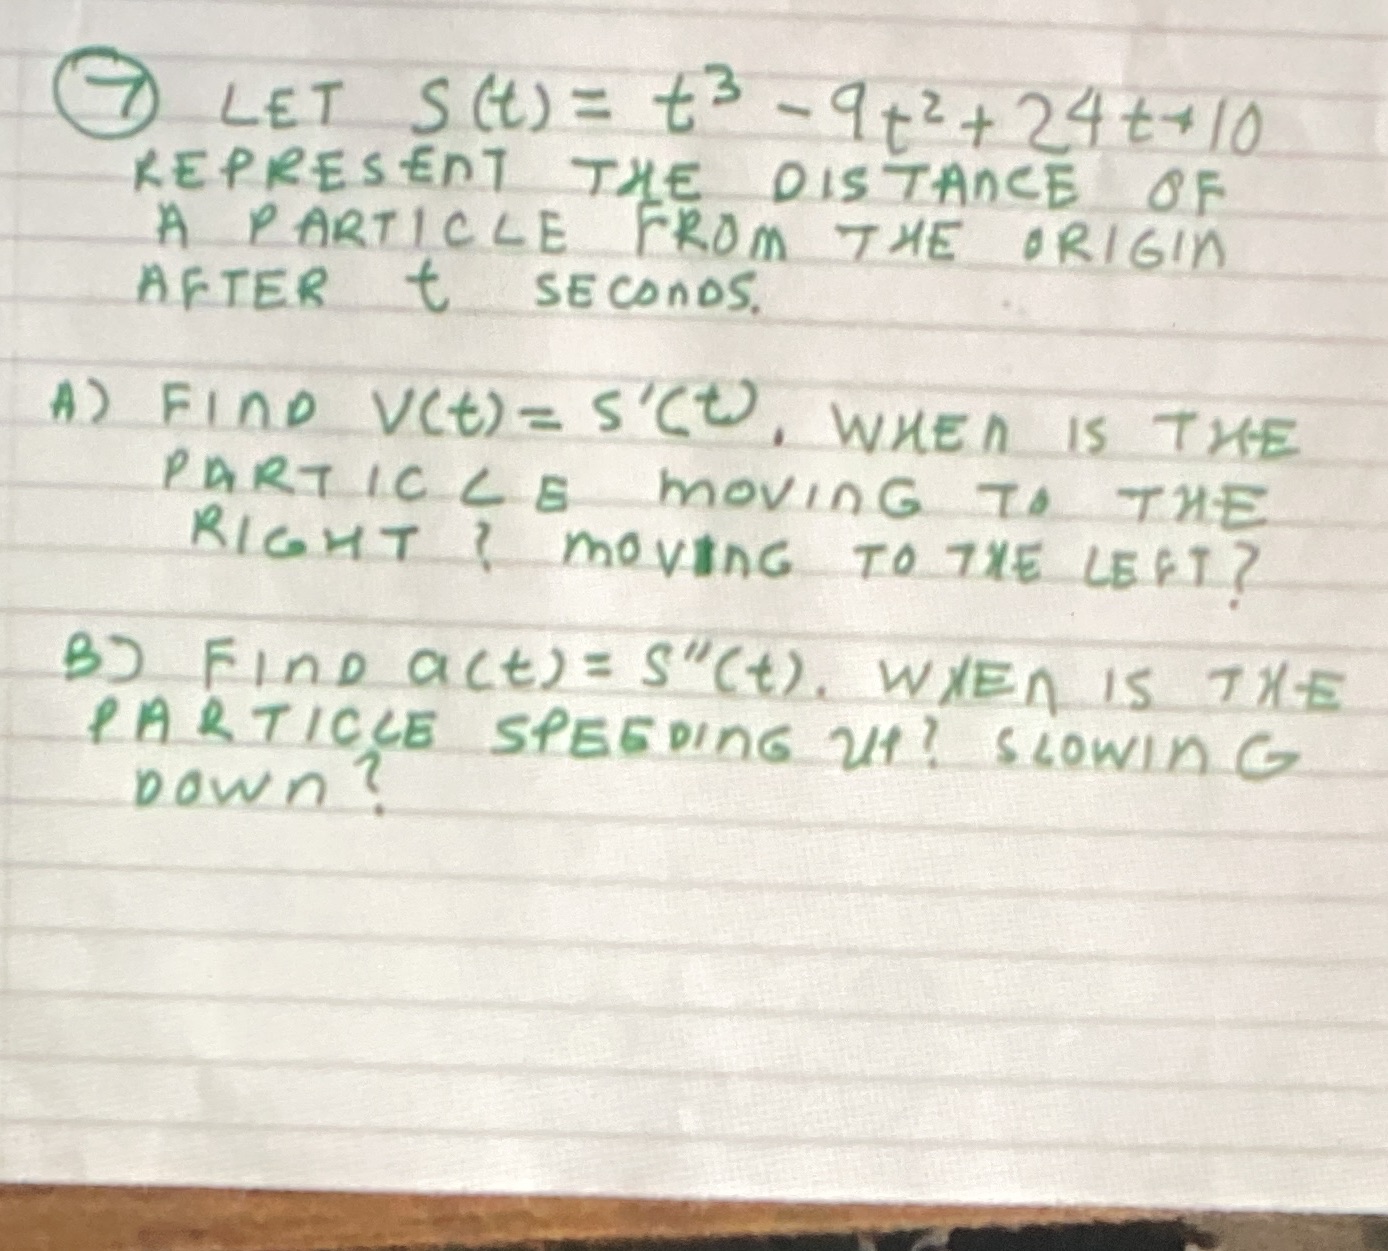 ⑦ LET S(t) = t³ - 9t² + 24t + 10
REPRESENT THE DISTANCE OF
A PARTICLE FROM THE ORIGIN
AFTER t SECONDS.
A) FIND V(t) = S'(t). WHEN IS THE
PARTICLE MOVING TO THE
RIGHT? MOVING TO THE LEFT?
B) FIND a(t) = S"(t). WHEN IS THE
PARTICLE SPEEDING UP? SLOWING
DOWN?